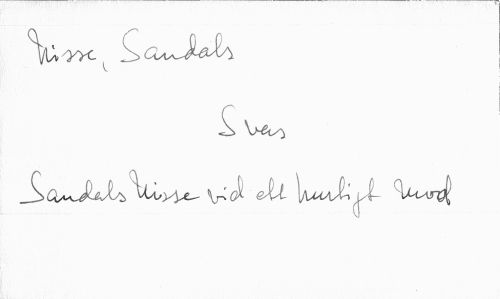 Nisse, Sandals
5 vers
Sandals Nisse vid ett hurtigt mod